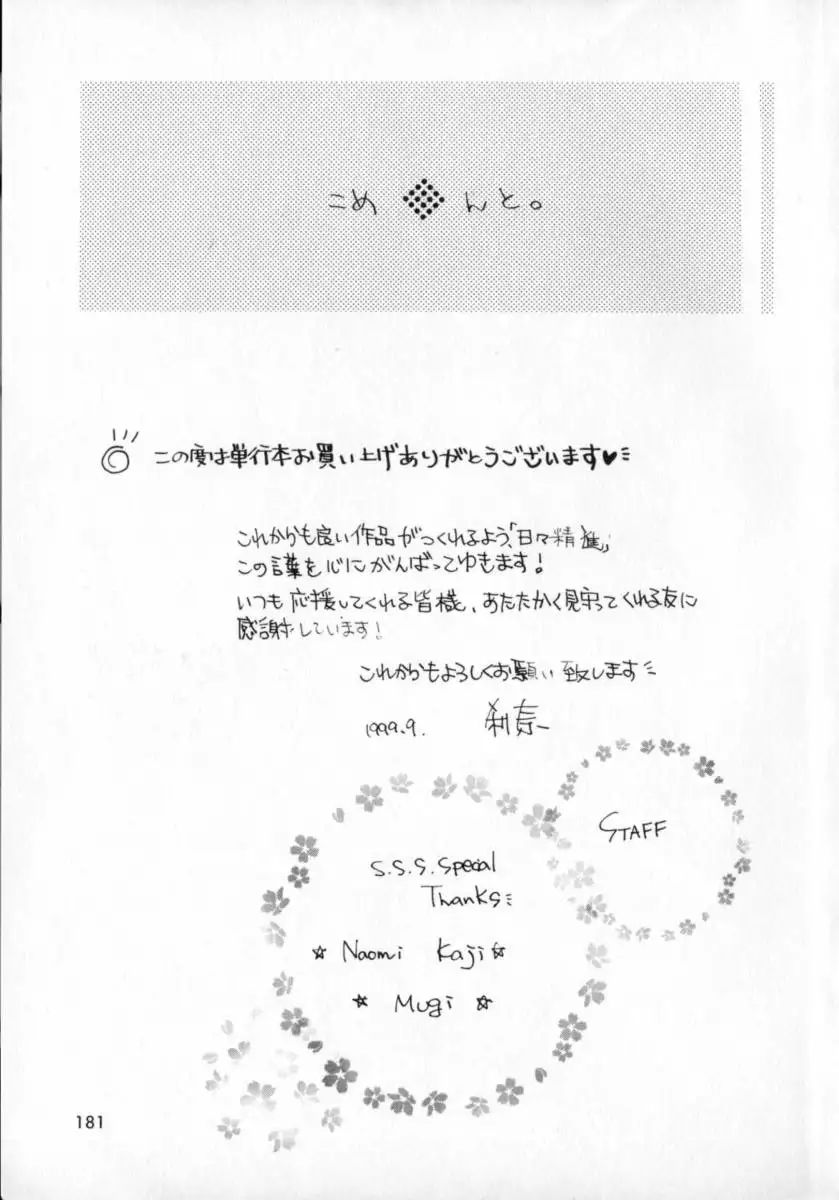 こめ んと。
この度は単行本お買い上げありがとうございます♥
これからも良い作品がつくれるよう、「日々精進」
この言葉を心にがんばってゆきます!
いつも応援してくれる皆様、あたたかく見守ってくれる友に
感謝しています!
これからもよろしくお願い致します
1999.9. 利奈
STAFF
S.S.S. Special
Thanks
☆ Naomi Kaji ☆
☆ Mugi ☆
181